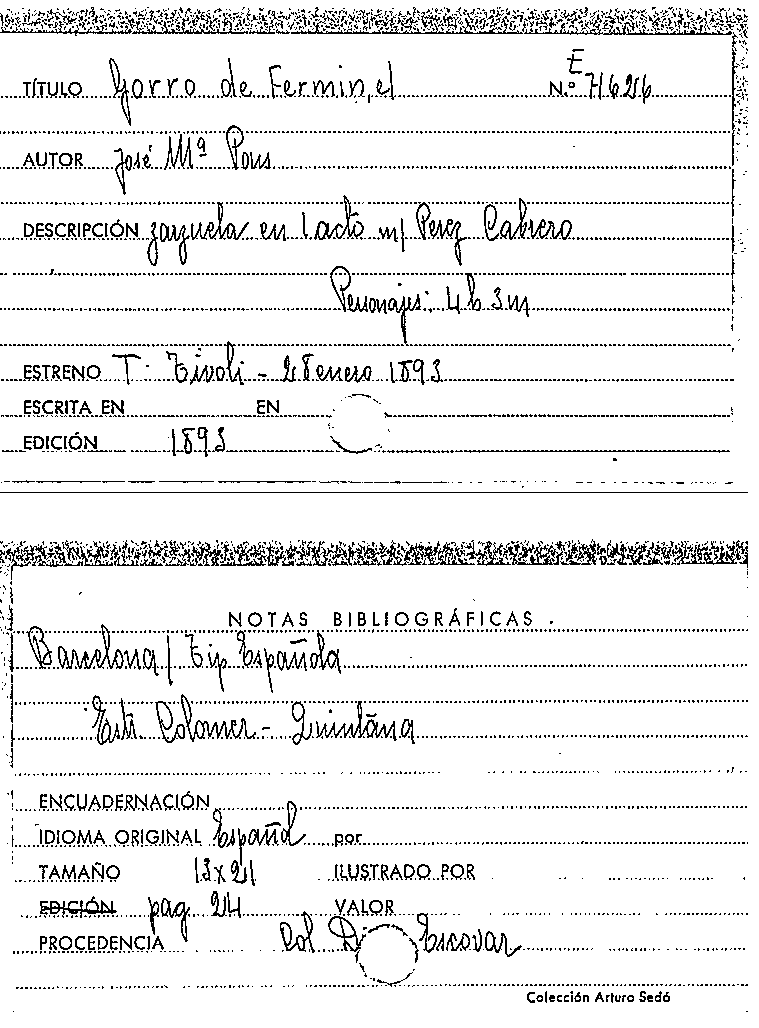 E
TÍTULO Gorro de Fermin, el N.º 71626
AUTOR José Mª Pons
DESCRIPCIÓN zarzuela en 1 acto m/ Perez Cabrero
Personajes: 4 h 3 m
ESTRENO T. Tivoli - 28 enero 1893
ESCRITA EN EN
EDICIÓN 1893
NOTAS BIBLIOGRÁFICAS .
Barcelona / Tip Española
Colomer - Quintana
ENCUADERNACIÓN
IDIOMA ORIGINAL Español por
TAMAÑO 13x21 ILUSTRADO POR
EDICIÓN pag. 24 VALOR
PROCEDENCIA Col Escovar
Colección Arturo Sedó